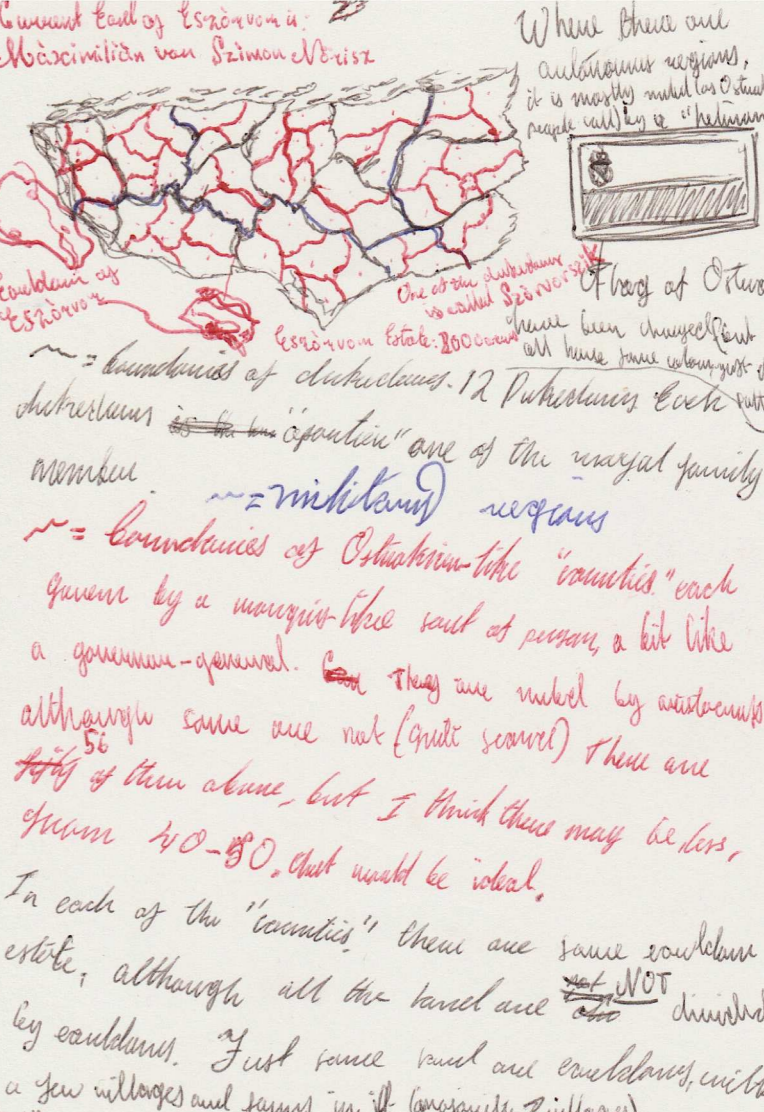 Current Earl of Eszòrvor is:
Màxcimiliàn van Szimon Nòrisz
Where there are
autonomus regions,
it is mostly ruled (as Ostu
people call) by a "hetman
Earldom of
Eszòrvor
One of the dukedoms
is called Szòrvorszik
Flag of Ostu
Eszòrvorn Estate: 800
have been changed, but
all have same colour just
~ = boundaries of dukedoms. 12 Dukedoms. Each
dukedoms is "apartin" one of the royal family
member.
~ = military regions
~ = boundaries of Ostuakian-like "counties." each
govern by a marquis-like sort of person, a bit like
a governor-general. They are ruled by aristocrats
although some are not (quite scarce) There are
56
fifty of them above, but I think there may be less,
from 40-50, that would be ideal.
In each of the "counties", there are some earldom
estate, although all the land are not NOT divided
by earldoms. Just some land are earldoms, with
a few villages and farms in it (majority villages)